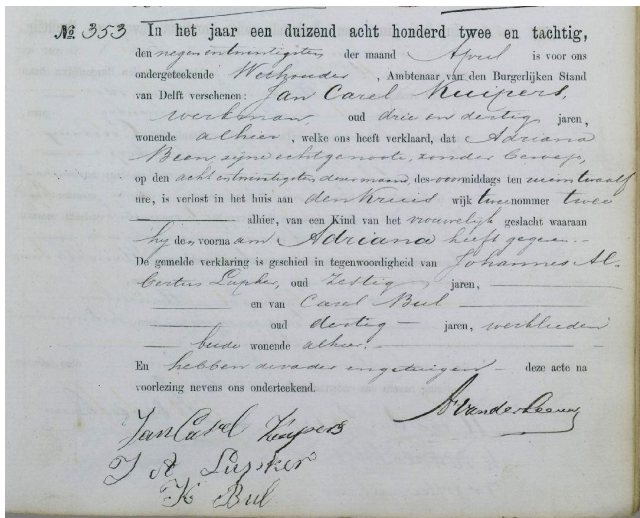 № 353 In het jaar een duizend acht honderd twee en tachtig,
den negenentwintigsten der maand April is voor ons
ondergeteekende Wethouder, Ambtenaar van den Burgerlijken Stand
van Delft verschenen: Jan Carel Kuipers,
werkman, oud drie en dertig jaren,
wonende alhier, welke ons heeft verklaard, dat Adriana
Been zijne echtgenoote, zonder beroep,
op den achtentwintigsten dezer maand, des voormiddags ten ruim twaalf
ure, is verlost in het huis aan den Kruis wijk twee nommer twee
alhier, van een Kind van het vrouwelijk geslacht waaraan
hij den voornaam Adriana heeft gegeven.
De gemelde verklaring is geschied in tegenwoordigheid van Johannes Al-
bertus Lupker, oud zestig jaren,
en van Carel Bul
oud dertig jaren, werklieden
beide wonende alhier.
En hebben de vader en getuigen deze acte na
voorlezing nevens ons onderteekend.
A vander Leeuw
Jan Carel Kuypers
J A Lupker
K Bul